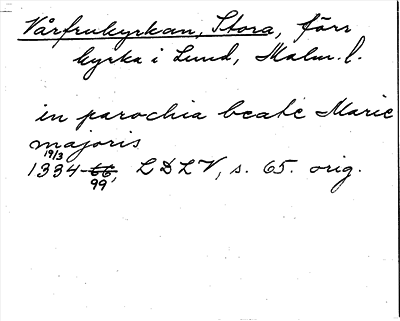 Vårfrukyrkan, Stora, förr
kyrka i Lund, Malm. l.
in parochia beate Marie
majoris
19/3
1334-66, LDLV, s. 65. orig.
99